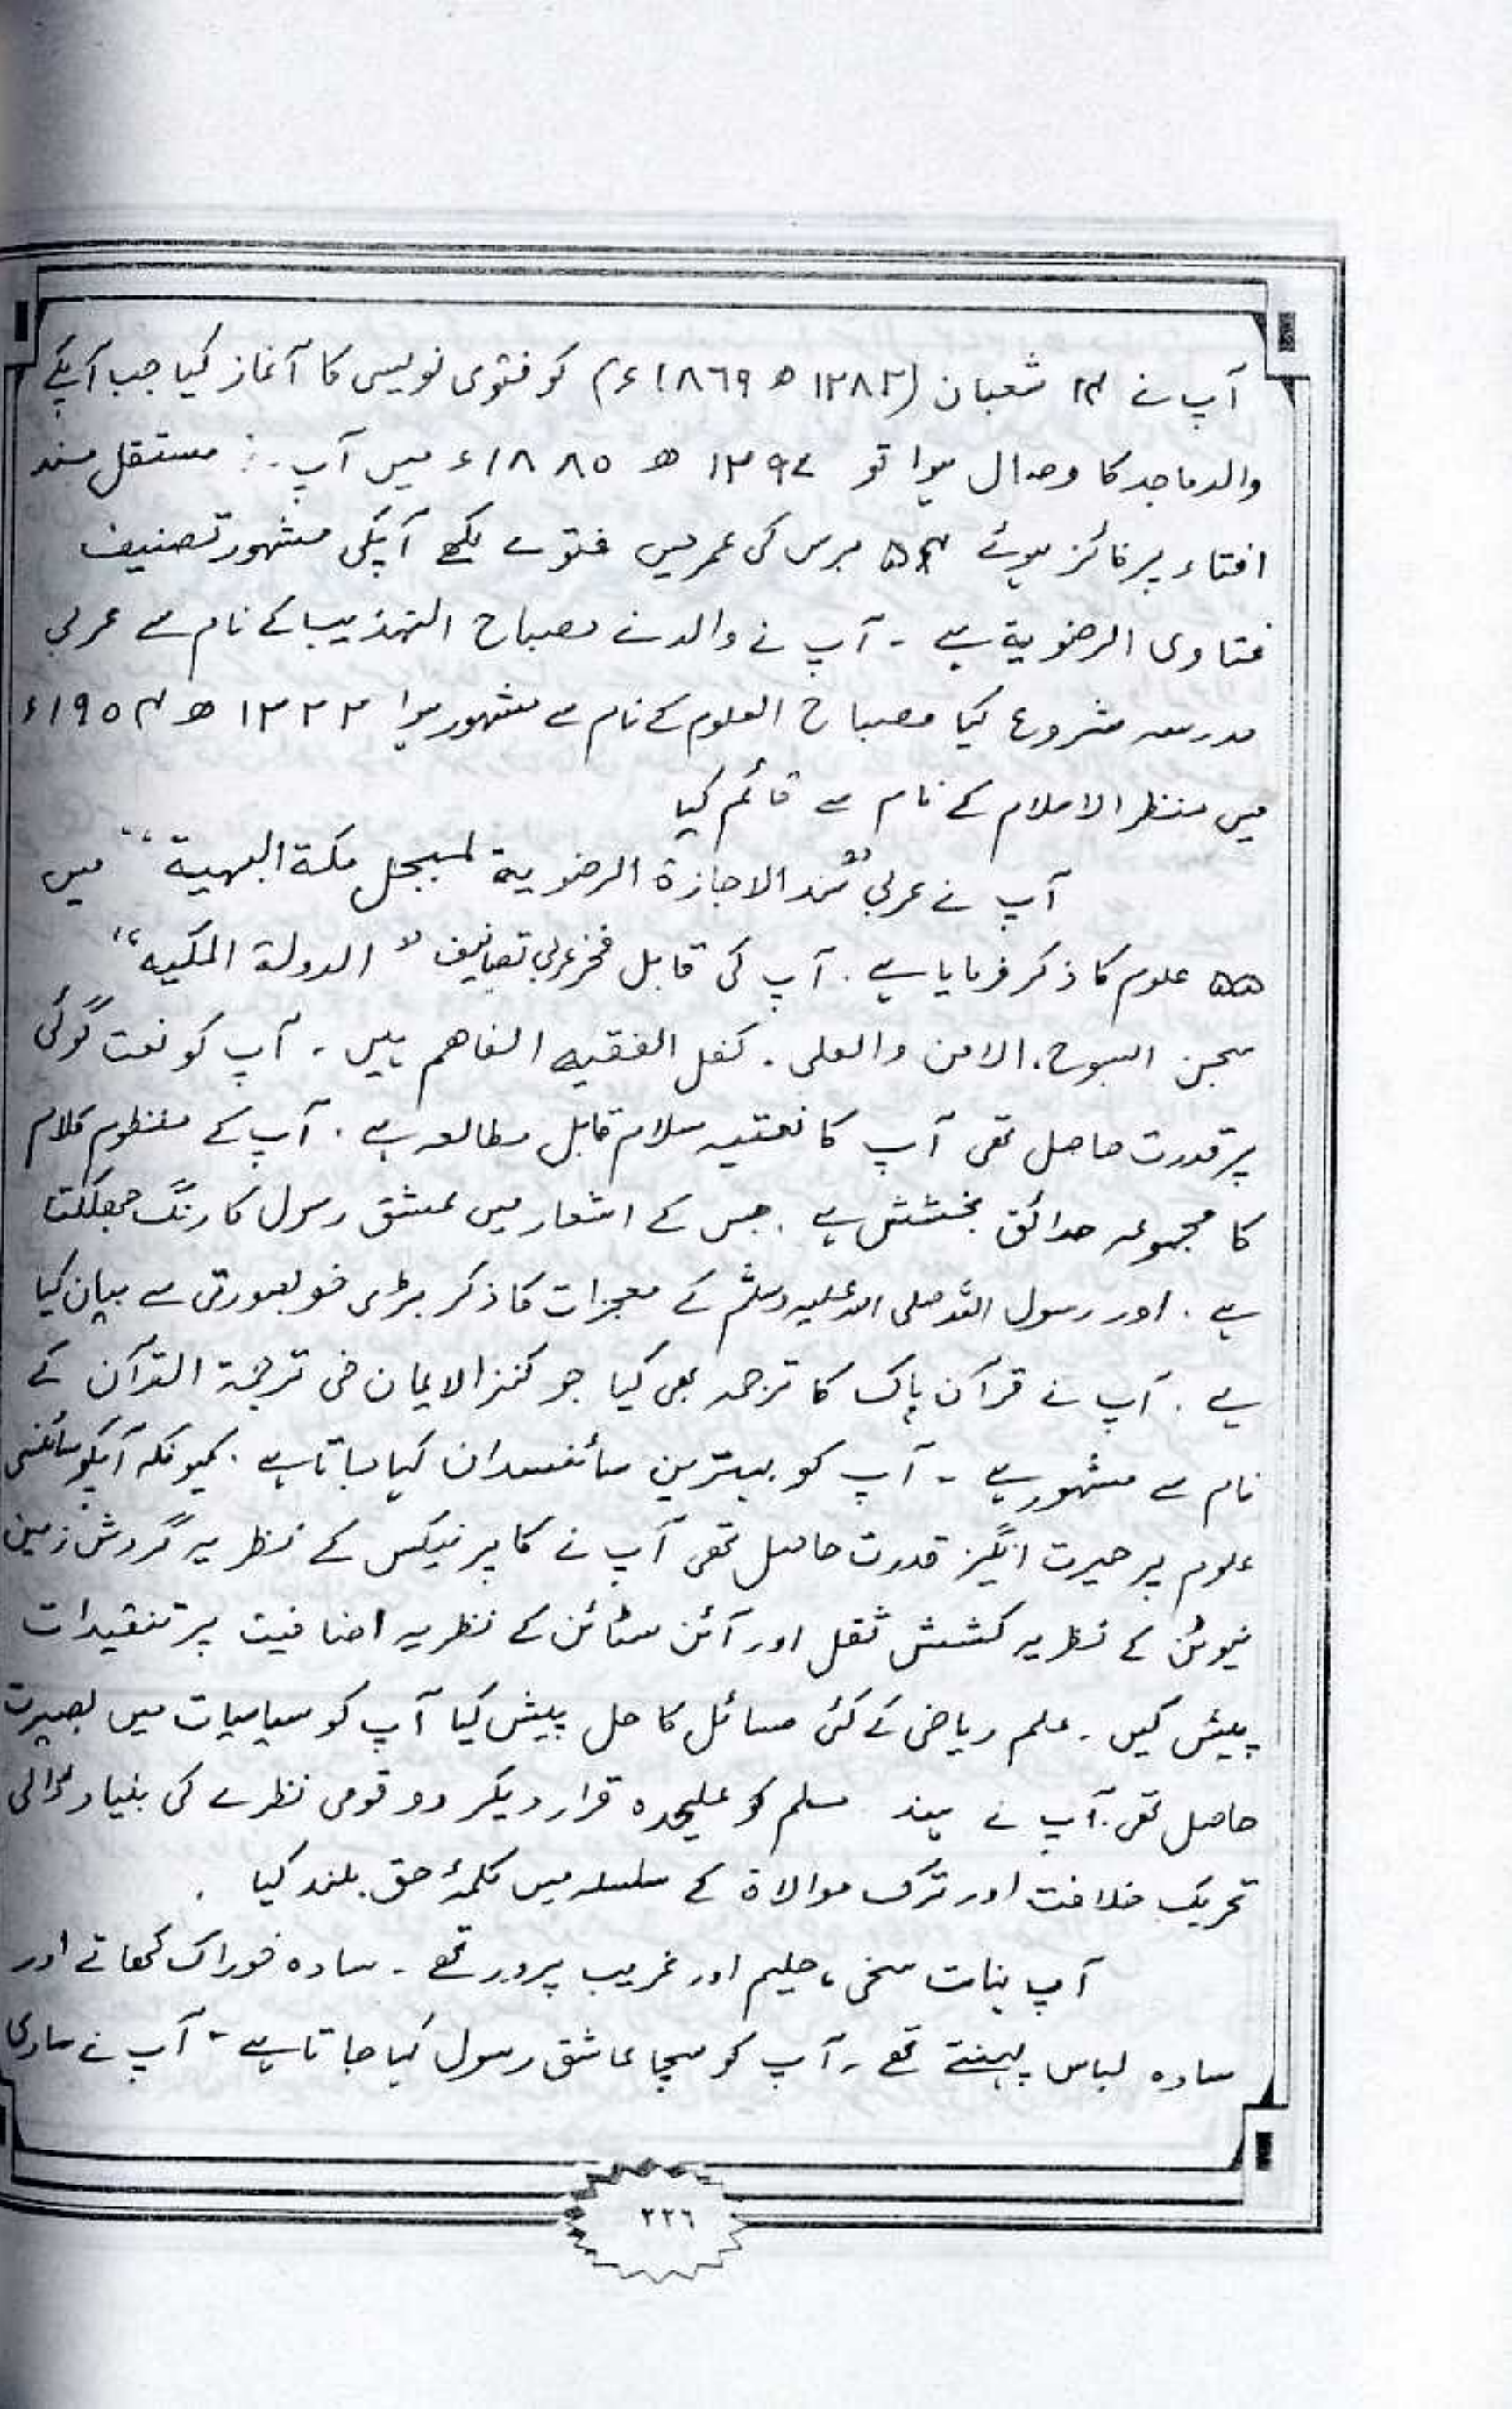 آپ نے ۱۴ شعبان (۱۲۸۲ ھ ۱۸۶۹ء) کو فتوی نویسی کا آغاز کیا جب آپکے
والد ماجد کا وصال ہوا تو ۱۲۹۷ ھ ۱۸۸۵ء میں آپ مستقل مسند
افتاء پر فائز ہوئے ۵۴ برس کی عمر میں فتوے لکھے آپکی مشہور تصنیف
فتاوی الرضویة ہے ۔ آپ نے والد نے مصباح التہذیب کے نام سے عربی
مدرسہ شروع کیا مصباح العلوم کے نام سے مشہور ہوا ۱۳۲۲ ھ ۱۹۵۴ء
میں منظر الاسلام کے نام سے قائم کیا
آپ نے عربی "سند الاجازة الرضویة لمبجل مکة البهیة" میں
۵۵ علوم کا ذکر فرمایا ہے ۔ آپ کی قابل فخر عربی تصانیف "الدولة المکیہ"
سجن السبوح، الامن والعلی ۔ کفل الفقیہ الفاھم ہیں ۔ آپ کو نعت گوئی
پر قدرت حاصل تھی آپ کا نعتیہ سلام قابل مطالعہ ہے ۔ آپ کے منظوم کلام
کا مجموعہ حدائق بخشش ہے ۔ جس کے اشعار میں عشق رسول کا رنگ جھلکتا
ہے ۔ اور رسول اللہ صلی اللہ علیہ وسلم کے معجزات کا ذکر بڑی خوبصورتی سے بیان کیا
ہے ۔ آپ نے قرآن پاک کا ترجمہ بھی کیا جو کنز الایمان فی ترجمۃ القرآن کے
نام سے مشہور ہے ۔ آپ کو بہترین سائنسدان کہا جاتا ہے ۔ کیونکہ آپکو سائنسی
علوم پر حیرت انگیز قدرت حاصل تھی آپ نے کاپرنیکس کے نظریہ گردش زمین
نیوٹن کے نظریہ کشش ثقل اور آئن سٹائن کے نظریہ اضافیت پر تنقیدات
پیش کیں ۔ علم ریاضی کے کئی مسائل کا حل پیش کیا آپ کو سیاسیات میں بصیرت
حاصل تھی ۔ آپ نے ہند مسلم کو علیحدہ قرار دیکر دو قومی نظرے کی بنیاد ڈالی
تحریک خلافت اور ترک موالاة کے سلسلہ میں کلمۂ حق بلند کیا ۔
آپ نہایت سخی، حلیم اور غریب پرور تھے ۔ سادہ خوراک کھاتے اور
سادہ لباس پہنتے تھے ۔ آپ کو سچا عاشق رسول کہا جاتا ہے ۔ آپ نے ساری
۲۲۶